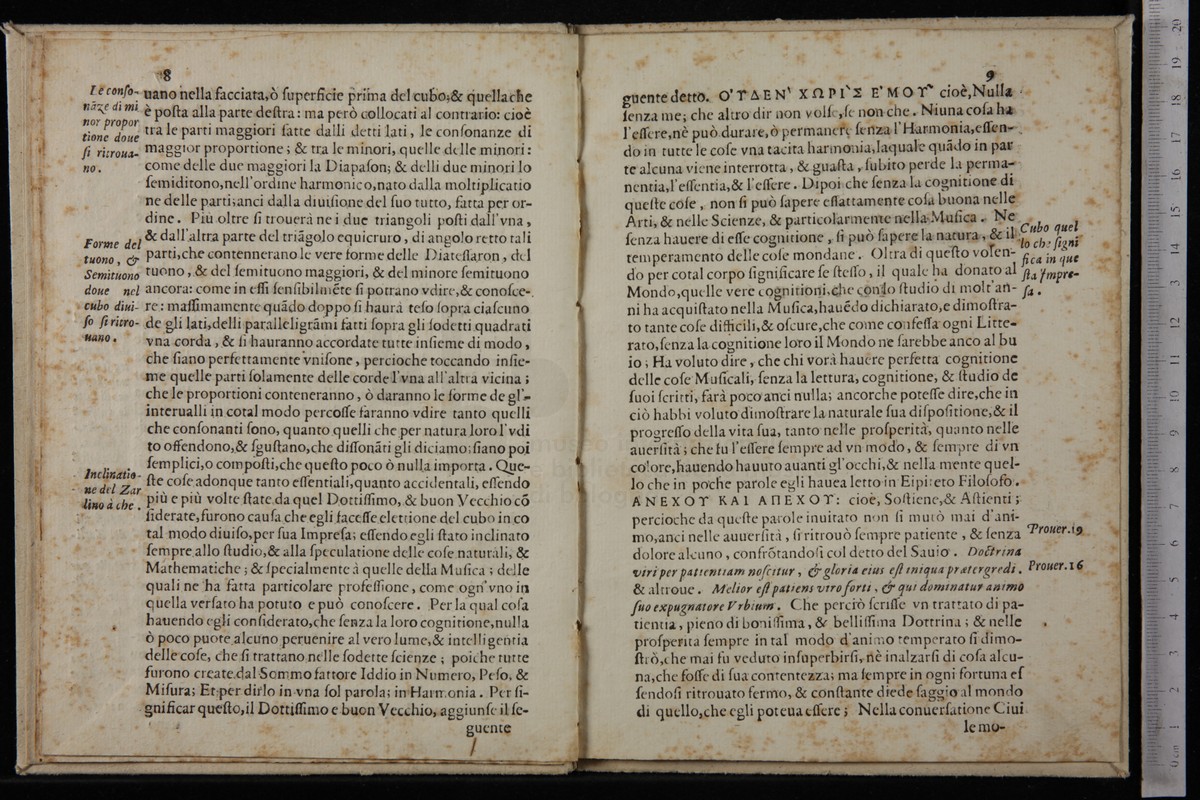 8
Le conso-
nāze di mi
nor propor
tione doue
si ritroua-
no.
uano nella facciata,ò ſuperficie prima del cubo;& quella che
è poſta alla parte deſtra: ma però collocati al contrario: cioè
tra le parti maggiori fatte dalli detti lati, le conſonanze di
maggior proportione; & tra le minori, quelle delle minori:
come delle due maggiori la Diapaſon; & delli due minori lo
ſemiditono,nell'ordine harmonico,nato dalla moltiplicatio
ne delle parti;anci dalla diuiſione del ſuo tutto, fatta per or-
dine. Più oltre ſi trouerà ne i due triangoli poſti dall'vna,
Forme del
tuono, &
Semituono
doue nel
cubo diui-
ſo ſi ritro-
uano.
& dall'altra parte del triāgolo equicruro, di angolo retto tali
parti,che contennerano le vere forme delle Diateſſaron, del
tuono, & del ſemituono maggiori, & del minore ſemituono
ancora: come in eſſi ſenſibilmēte ſi potrano vdire,& conoſce-
re: maſſimamente quādo doppo ſi haurà teſo ſopra ciaſcuno
de gli lati,delli paralleligrāmi fatti ſopra gli ſodetti quadrati
vna corda, & ſi hauranno accordate tutte inſieme di modo,
che ſiano perfettamente vniſone, percioche toccando inſie-
me quelle parti ſolamente delle corde l'vna all'altra vicina;
che le proportioni conteneranno, ò daranno le forme de gl'-
interualli in cotal modo percoſſe faranno vdire tanto quelli
che conſonanti ſono, quanto quelli che per natura loro l'vdi
to offendono,& ſguſtano,che diſſonāti gli diciamo;ſiano poi
ſemplici,o compoſti,che queſto poco ò nulla importa. Que-
Inclinatio-
ne del Zar
lino à che.
ſte coſe adonque tanto eſſentiali,quanto accidentali, eſſendo
più e più volte ſtate da quel Dottiſſimo, & buon Vecchio cō
ſiderate,furono cauſa che egli faceſſe elettione del cubo in co
tal modo diuiſo,per ſua Impreſa; eſſendo egli ſtato inclinato
ſempre allo ſtudio,& alla ſpeculatione delle coſe naturali, &
Mathematiche; & ſpecialmente à quelle della Muſica; delle
quali ne ha fatta particolare profeſſione, come ogn'vno in
quella verſato ha potuto e può conoſcere. Per la qual coſa
hauendo egli conſiderato,che ſenza la loro cognitione,nulla
ò poco puote alcuno peruenire al vero lume,& intelligentia
delle coſe, che ſi trattano nelle ſodette ſcienze; poiche tutte
furono create dal Sommo fattore Iddio in Numero, Peſo, &
Miſura; Et per dirlo in vna ſol parola; in Harmonia. Per ſi-
gnificar queſto,il Dottiſſimo e buon Vecchio, aggiunſe il ſe-
guente
9
guente detto. Ο'ΥΔΕΝ' ΧΩΡΙ'Σ Ε'ΜΟΥ˜ cioè,Nulla
ſenza me; che altro dir non volſe,ſe non che. Niuna coſa ha
l'eſſere,nè può durare,ò permanere ſenza l'Harmonia,eſſen-
do in tutte le coſe vna tacita harmonia,laquale quādo in par
te alcuna viene interrotta, & guaſta, ſubito perde la perma-
nentia,l'eſſentia,& l'eſſere. Dipoi che ſenza la cognitione di
queſte coſe, non ſi può ſapere eſſattamente coſa buona nelle
Arti, & nelle Scienze, & particolarmente nella Muſica. Ne
ſenza hauere di eſſe cognitione, ſi può ſapere la natura, & il
temperamento delle coſe mondane. Oltra di queſto volen-
do per cotal corpo ſignificare ſe ſteſſo, il quale ha donato al
Mondo,quelle vere cognitioni,che con lo ſtudio di molt'an-
ni ha acquiſtato nella Muſica,hauēdo dichiarato,e dimoſtra-
Cubo quel
lo che ſigni
fica in que
ſta Impre-
ſa.
to tante coſe difficili,& oſcure,che come confeſſa ogni Litte-
rato,ſenza la cognitione loro il Mondo ne ſarebbe anco al bu
io; Ha voluto dire, che chi vorà hauere perfetta cognitione
delle coſe Muſicali, ſenza la lettura, cognitione, & ſtudio de
ſuoi ſcritti, farà poco anci nulla; ancorche poteſſe dire,che in
ciò habbi voluto dimoſtrare la naturale ſua diſpoſitione,& il
progreſſo della vita ſua, tanto nelle proſperità, quanto nelle
auerſità; che fu l'eſſere ſempre ad vn modo, & ſempre di vn
colore,hauendo hauuto auanti gl'occhi,& nella mente quel-
lo che in poche parole egli hauea letto in Eipiteto Filoſofo.
ΑΝΕΧΟΥ ΚΑΙ ΑΠΕΧΟΥ: cioè, Soſtiene,& Aſtienti;
percioche da queſte parole inuitato non ſi mutò mai d'ani-
mo,anci nelle auuerſità, ſi ritrouò ſempre patiente, & ſenza
dolore alcuno, confrōtandoſi col detto del Sauio. Doctrina
viri per patientiam noſcitur, & gloria eius eſt iniqua prætergredi.
& altroue. Melior eſt patiens viro forti, & qui dominatur animo
ſuo expugnatore Vrbium. Che perciò ſcriſſe vn trattato di pa-
Prouer.19
Prouer.16
tientia, pieno di boniſſima, & belliſſima Dottrina; & nelle
proſperità ſempre in tal modo d'animo temperato ſi dimo-
ſtrò,che mai fu veduto inſuperbirſi, nè inalzarſi di coſa alcu-
na,che foſſe di ſua contentezza; ma ſempre in ogni fortuna eſ
ſendoſi ritrouato fermo, & conſtante diede ſaggio al mondo
di quello,che egli poteua eſſere; Nella conuerſatione Ciui
le mo-